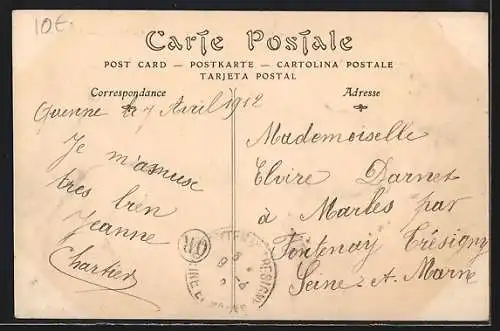 10€
Carte Postale
POST CARD — POSTKARTE — CARTOLINA POSTALE
TARJETA POSTAL
Correspondance
Adresse
le 7 Avril 1912
Je m'amuse
tres bien
Jeanne
Chartier
Mademoiselle
Elvire Darnet
à Marles par
Fontenay Trésigny
Seine et Marn
OR